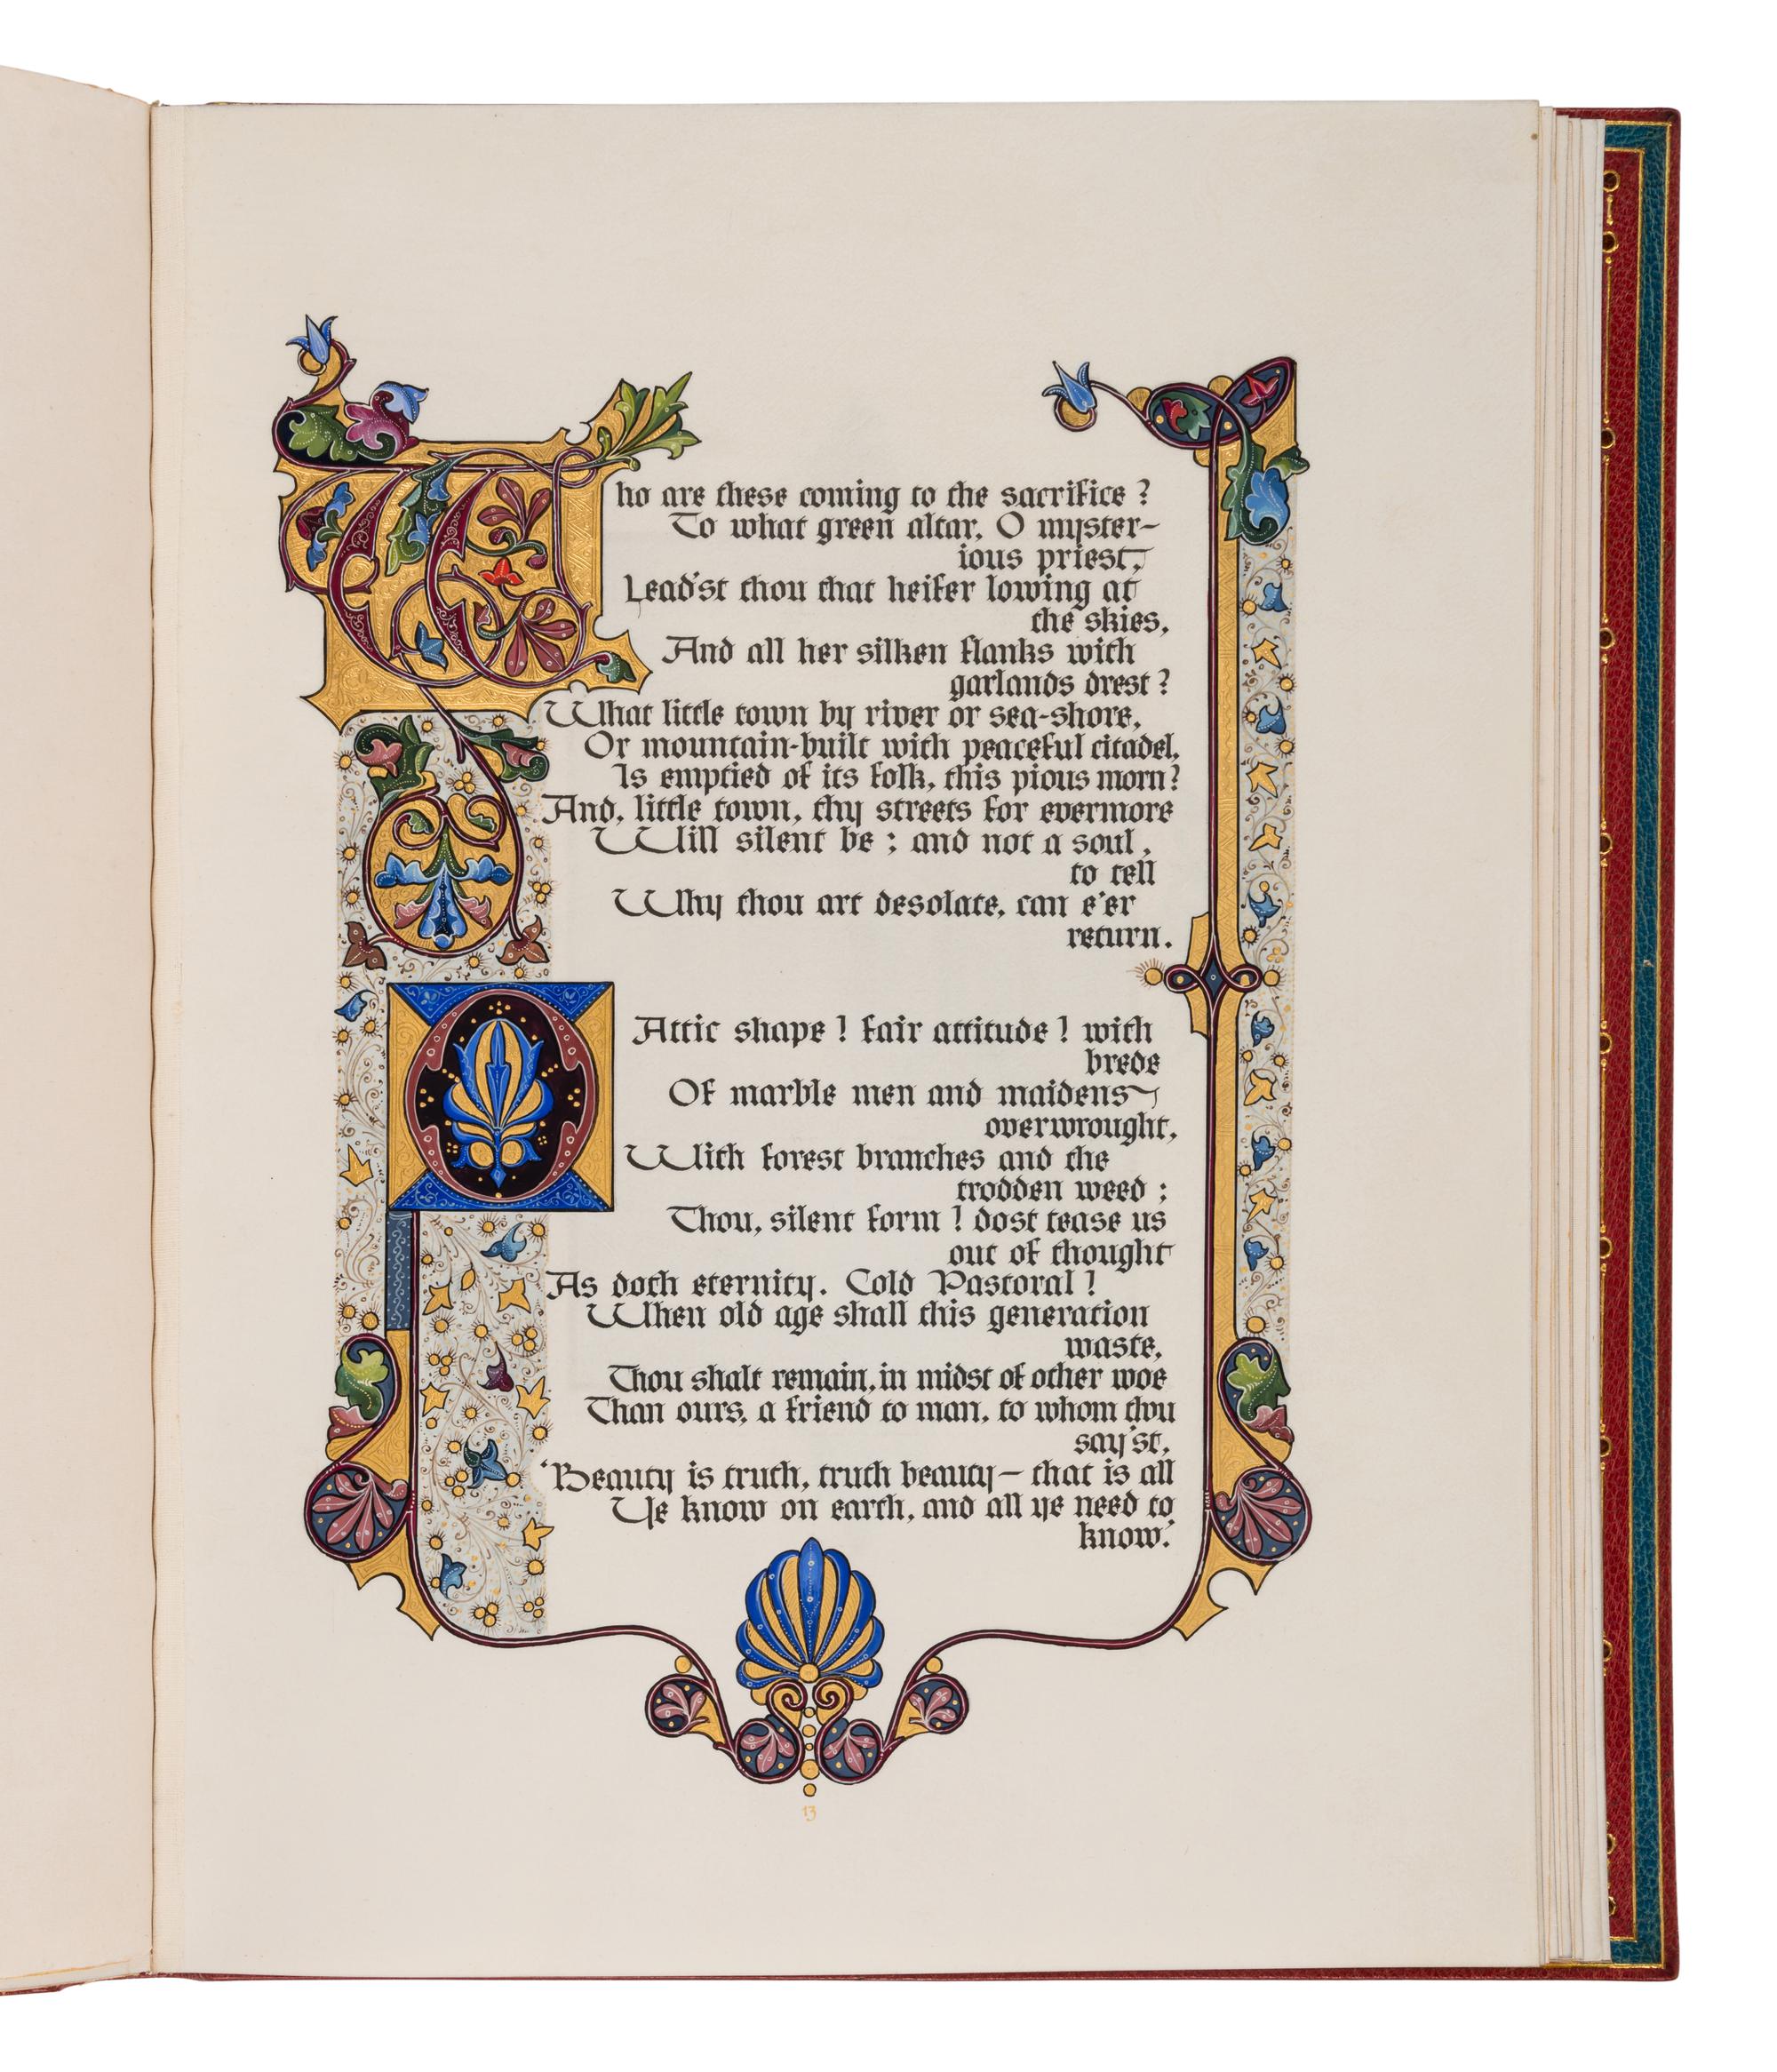 Who are these coming to the sacrifice ?
To what green altar, O myster-
ious priest,
Lead'st thou that heifer lowing at
the skies,
And all her silken flanks with
garlands drest ?
What little town by river or sea-shore,
Or mountain-built with peaceful citadel,
Is emptied of its folk, this pious morn ?
And, little town, thy streets for evermore
Will silent be ; and not a soul,
to tell
Why thou art desolate, can e'er
return.
O Attic shape ! fair attitude ! with
brede
Of marble men and maidens
overwrought,
With forest branches and the
trodden weed ;
Thou, silent form ! dost tease us
out of thought
As doth eternity. Cold Pastoral !
When old age shall this generation
waste,
Thou shalt remain, in midst of other woe
Than ours, a friend to man, to whom thou
say'st,
'Beauty is truth, truth beauty — that is all
Ye know on earth, and all ye need to
know.'
13